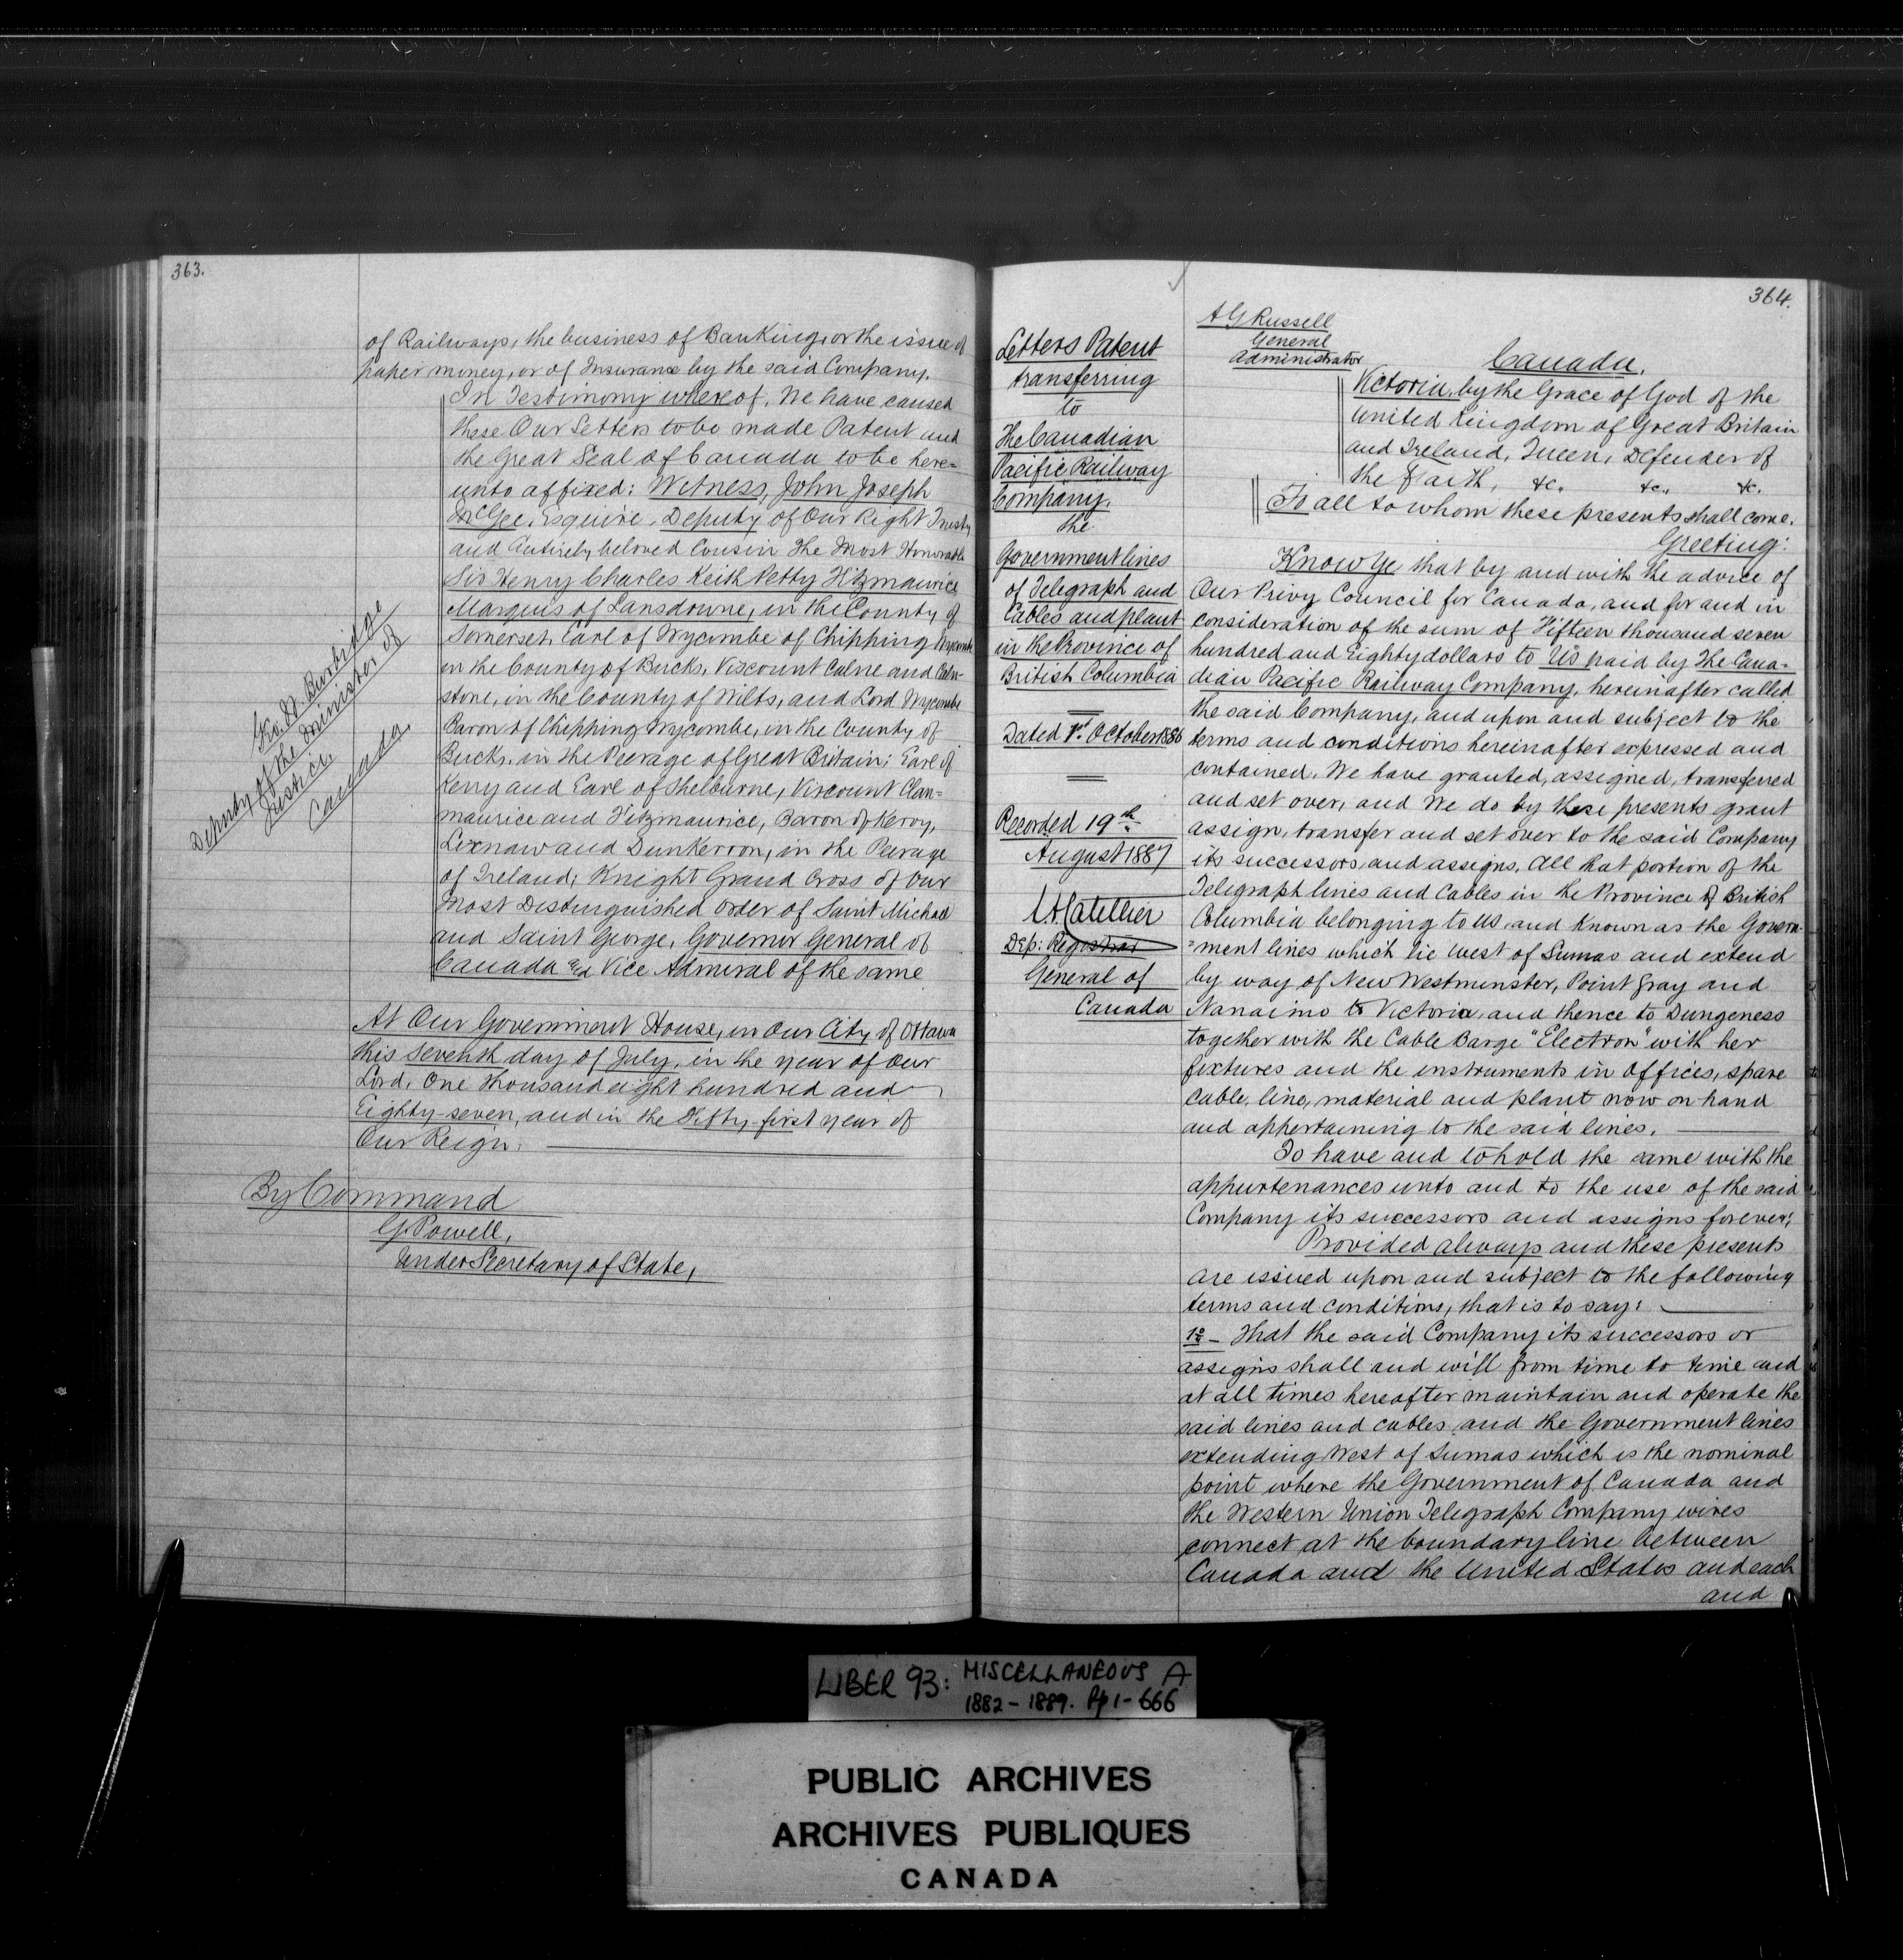 363.
of Railways, the business of Banking, or the issue of
paper money, or of Insurance by the said Company.
In Testimony whereof, We have caused
these Our Letters to be made Patent and
the Great Seal of Canada to be here=
unto affixed: Witness, John Joseph
McGee, Esquire, Deputy of Our Right Trusty
and Entirely beloved Cousin The Most Honorable
Sir Henry Charles Keith Petty Fitzmaurice
Marquis of Lansdowne, in the County of
Somerset, Earl of Wycombe of Chipping Wycombe
in the County of Bucks, Viscount Calne and Caln-
stone, in the County of Wilts, and Lord Wycombe
Baron of Chipping Wycombe, in the County of
Bucks, in the Peerage of Great Britain; Earl of
Kerry and Earl of Shelburne, Viscount Clan=
maurice and Fitzmaurice, Baron of Kerry,
Lixnaw and Dunkerron, in the Peerage
of Ireland; Knight Grand Cross of Our
Most Distinguished Order of Saint Michael
and Saint George, Governor General of
Canada and Vice Admiral of the same
Geo. W. Burbidge
Deputy of the Minister of
Justice,
Canada,
At Our Government House, in Our City of Ottawa
this seventh day of July, in the year of Our
Lord, One thousand eight hundred and
Eighty-seven, and in the Fifty-first year of
Our Reign.
By Command
G. Powell,
Under Secretary of State,
364.
Letters Patent
transferring
to
The Canadian
Pacific Railway
Company,
the
Government lines
of Telegraph and
Cables and plant
in the Province of
British Columbia
Dated 1st October 1886
Recorded 19th
August 1887
Dep: Registrar
General of
Canada
A G Russell
General
Administrator
Canada,
Victoria, by the Grace of God of the
United Kingdom of Great Britain
and Ireland, Queen, Defender of
the Faith, &c. &c., &c.
To all to whom these presents shall come.
Greeting:
Know Ye that by and with the advice of
Our Privy Council for Canada, and for and in
consideration of the sum of Fifteen thousand seven
hundred and Eighty dollars to Us paid by The Cana=
dian Pacific Railway Company, hereinafter called
the said Company, and upon and subject to the
terms and conditions hereinafter expressed and
contained, We have granted, assigned, transferred
and set over, and We do by these presents grant
assign, transfer and set over to the said Company
its successors and assigns, All that portion of the
Telegraph lines and Cables in the Province of British
Columbia belonging to us, and known as the Govern
=ment lines which lie West of Sumas and extend
by way of New Westminster, Point Gray and
Nanaimo to Victoria, and thence to Dungeness
together with the Cable Barge "Electron" with her
fixtures and the instruments in offices, spare
cable, line, material and plant now on hand
and appertaining to the said lines.
To have and to hold the same with the
appurtenances unto and to the use of the said
Company its successors and assigns forever;
Provided always and these presents
are issued upon and subject to the following
terms and conditions, that is to say:
1o - That the said Company its successors or
assigns shall and will from time to time and
at all times hereafter maintain and operate the
said lines and cables, and the Government lines
extending West of Sumas which is the nominal
point where the Government of Canada and
the Western Union Telegraph Company wires
connect at the boundary line between
Canada and the United States and each
and
LIBER 93: MISCELLANEOUS A
1882 - 1889. Pp 1 - 666
PUBLIC ARCHIVES
ARCHIVES PUBLIQUES
CANADA